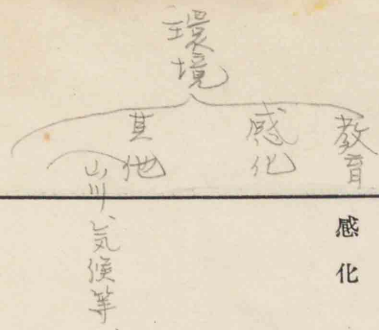 環境
教育
感化
其他
山川、気候等
感化